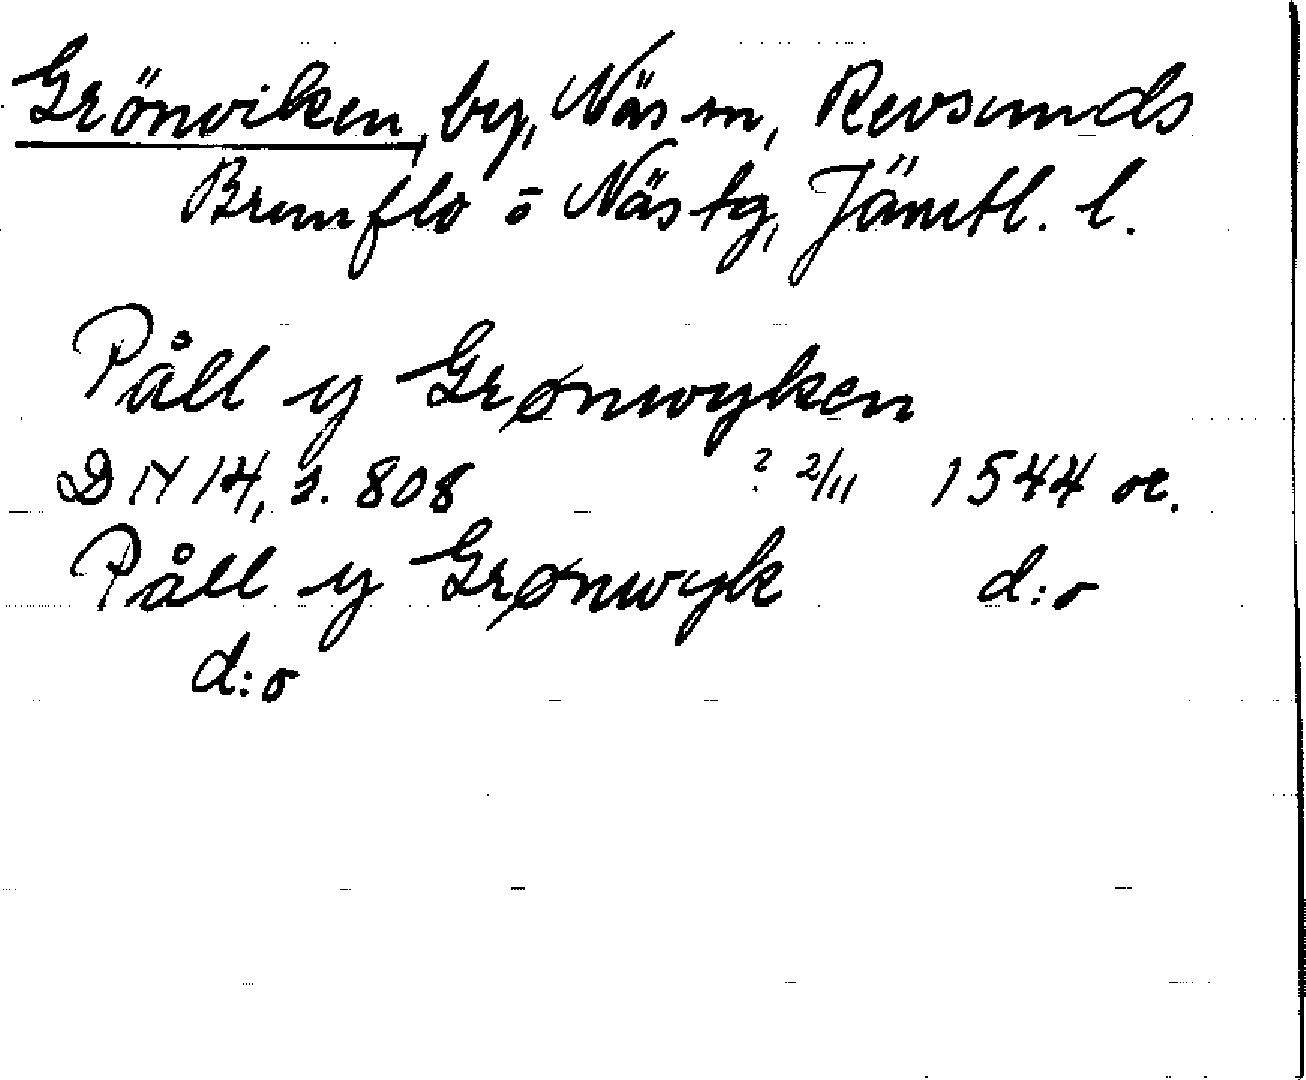 Grönviken, by, Näs sn, Revsunds
Brunflo o Näs tg, Jämtl. l.
Påll y Grønwyken
DN 14, s. 808 ? 2/11 1544 or.
Påll y Grønwyk d:o
d:o